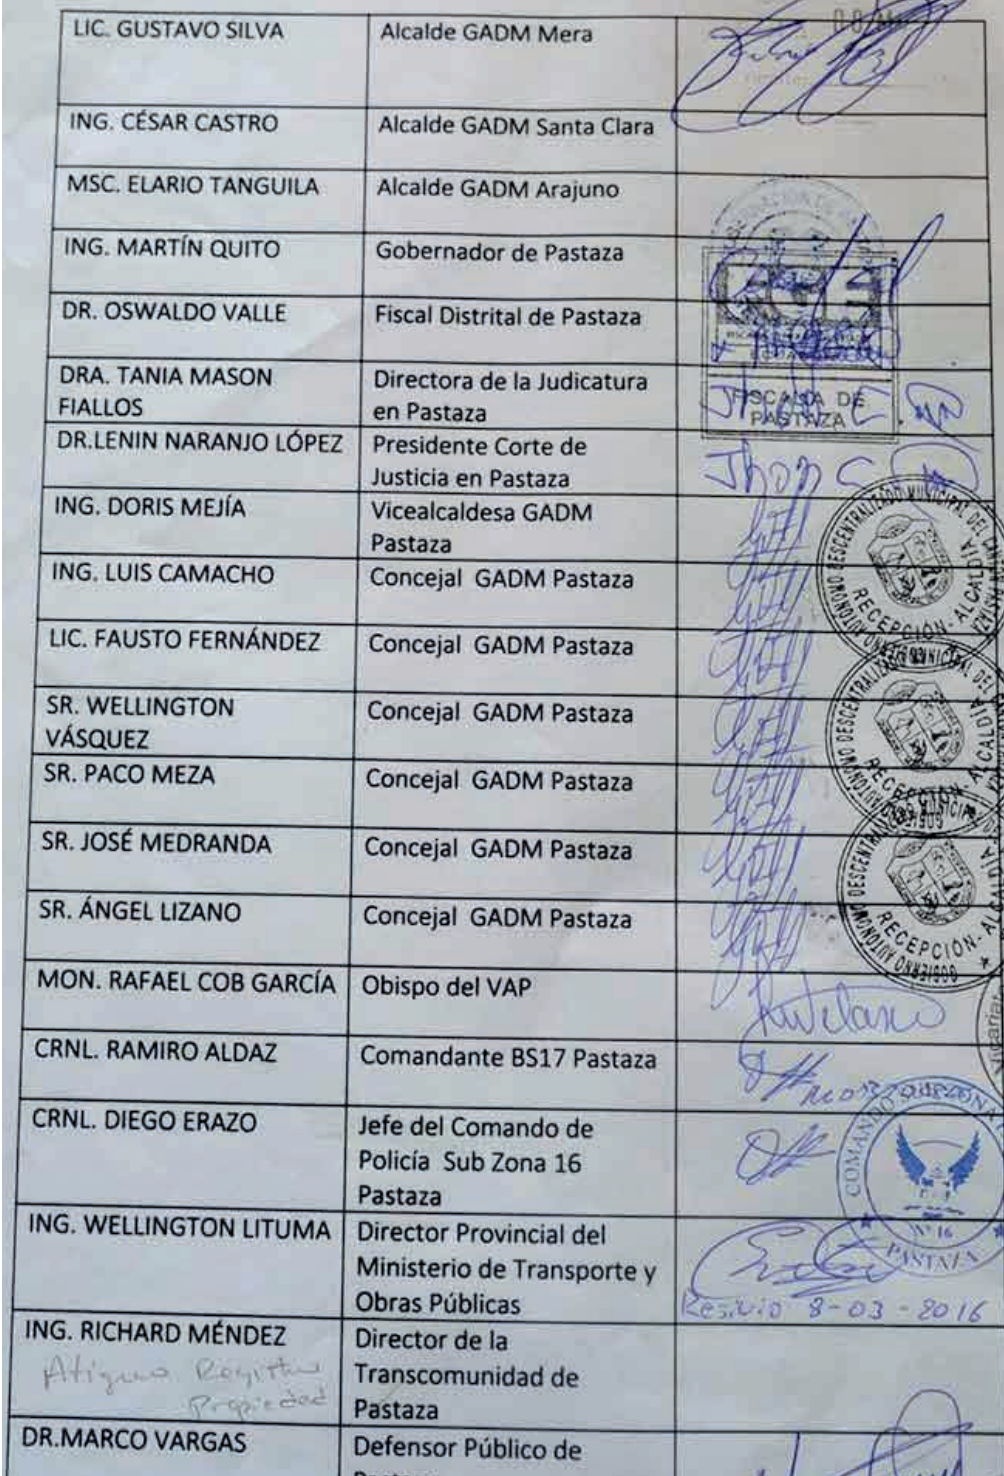 LIC. GUSTAVO SILVA
Alcalde GADM Mera
ING. CÉSAR CASTRO
Alcalde GADM Santa Clara
MSC. ELARIO TANGUILA
Alcalde GADM Arajuno
ING. MARTÍN QUITO
Gobernador de Pastaza
DR. OSWALDO VALLE
Fiscal Distrital de Pastaza
DRA. TANIA MASON
FIALLOS
Directora de la Judicatura
en Pastaza
FISCALIA DE
PASTAZA
DR.LENIN NARANJO LÓPEZ
Presidente Corte de
Justicia en Pastaza
ING. DORIS MEJÍA
Vicealcaldesa GADM
Pastaza
ING. LUIS CAMACHO
Concejal GADM Pastaza
RECEPCIÓN - ALCALDÍA
LIC. FAUSTO FERNÁNDEZ
Concejal GADM Pastaza
SR. WELLINGTON
VÁSQUEZ
Concejal GADM Pastaza
RECEPCIÓN - ALCALDÍA
SR. PACO MEZA
Concejal GADM Pastaza
SR. JOSÉ MEDRANDA
Concejal GADM Pastaza
SR. ÁNGEL LIZANO
Concejal GADM Pastaza
RECEPCIÓN - ALCALDÍA
GOBIERNO AUTONOMO DESCENTRALIZADO
MON. RAFAEL COB GARCÍA
Obispo del VAP
CRNL. RAMIRO ALDAZ
Comandante BS17 Pastaza
CRNL. DIEGO ERAZO
Jefe del Comando de
Policía Sub Zona 16
Pastaza
COMANDO SUBZONA
Nº 16
PASTAZA
ING. WELLINGTON LITUMA
Director Provincial del
Ministerio de Transporte y
Obras Públicas
8-03-2016
ING. RICHARD MÉNDEZ
Propiedad
Director de la
Transcomunidad de
Pastaza
DR.MARCO VARGAS
Defensor Público de